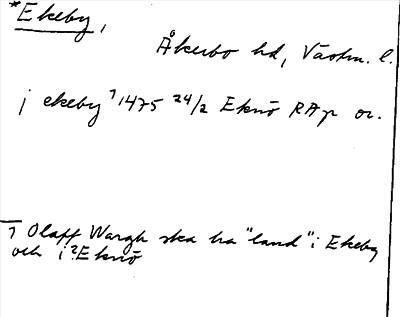 *Ekeby,
Åkerbo hd, Västm. l.
j ekeby ⁊ 1475 24/2 Eknö RAp or.
⁊ Olaff Wargh ska ha "land" i Ekeby
och i ?Eknö